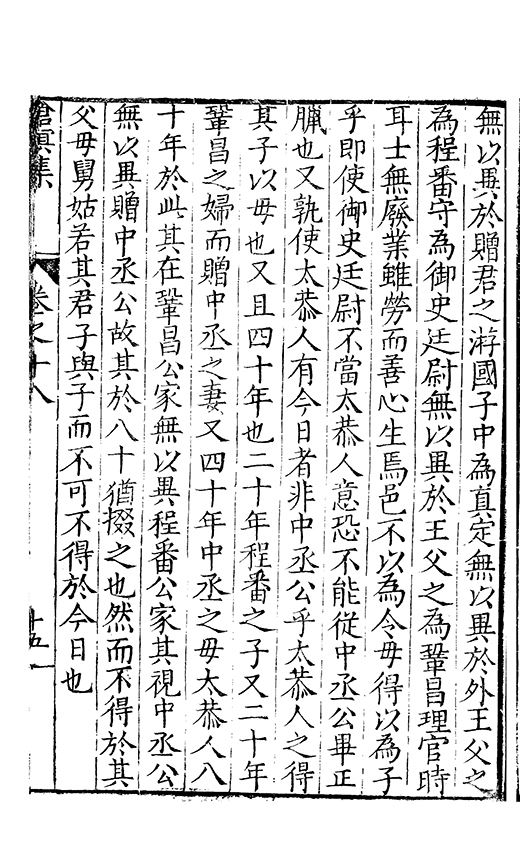 無以異於贈君之游國子中為真定無以異於外王父之
為程番守為御史廷尉無以異於王父之為鞏昌理官時
耳士無廢業雖勞而善心生焉邑不以為令母得以為子
乎即使御史廷尉不當太恭人意恐不能從中丞公畢正
臘也又孰使太恭人有今日者非中丞公乎太恭人之得
其子以母也又且四十年也二十年程番之子又二十年
鞏昌之婦而贈中丞之妻又四十年中丞之母太恭人八
十年於此其在鞏昌公家無以異程番公家其視中丞公
無以異贈中丞公故其於八十猶掇之也然而不得於其
父母舅姑若其君子與子而不可不得於今日也
滄溟集 卷之十八 十五